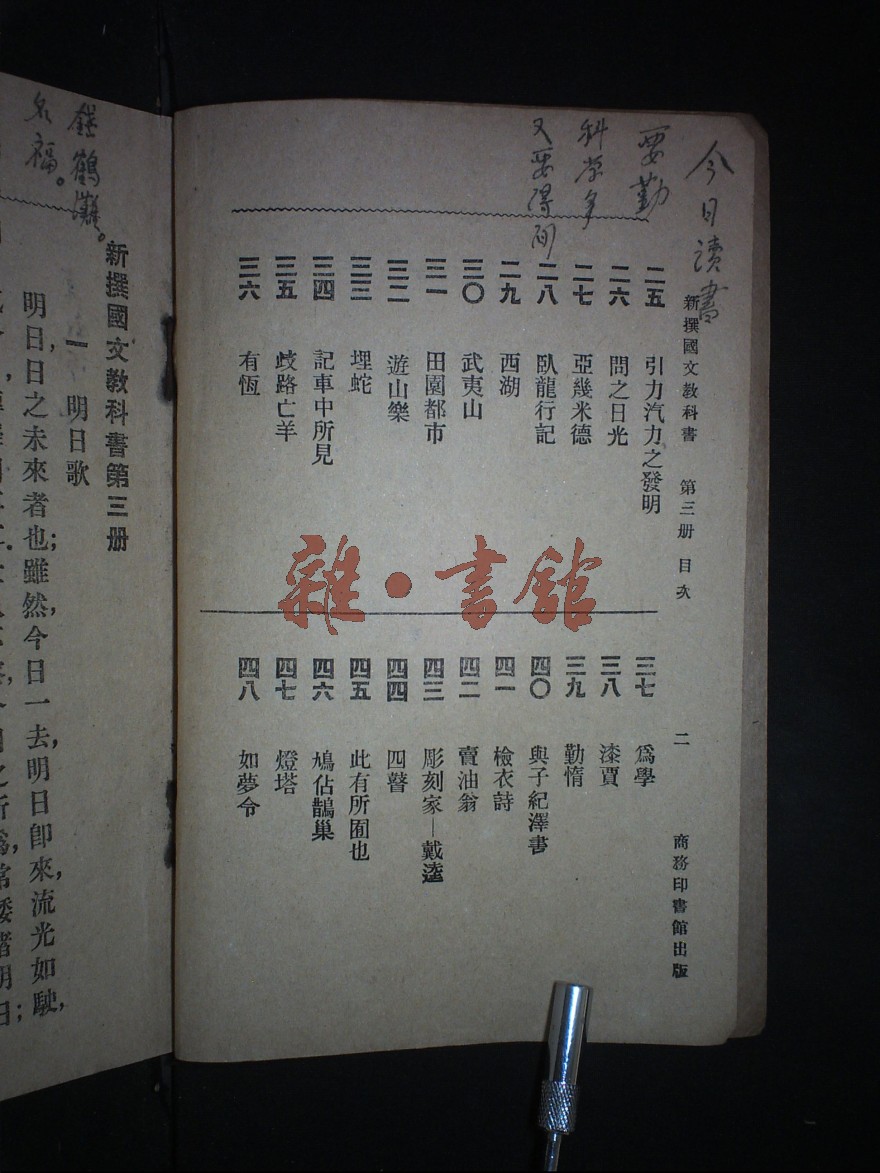 今日讀書
要勤
科學多
又要得閒
新撰國文教科書 第三册 目次 二 商務印書館出版
二五 引力汽力之發明
二六 問之日光
二七 亞幾米德
二八 臥龍行記
二九 西湖
三〇 武夷山
三一 田園都市
三二 遊山樂
三三 埋蛇
三四 記車中所見
三五 歧路亡羊
三六 有恆
三七 爲學
三八 漆賈
三九 勤惰
四〇 與子紀澤書
四一 檢衣詩
四二 賣油翁
四三 彫刻家—戴逵
四四 四瞽
四五 此有所囿也
四六 鳩佔鵲巢
四七 燈塔
四八 如夢令
雜·書館
鶴灘。
名福。
新撰國文教科書第三册
一 明日歌
明日,日之未來者也;雖然,今日一去,明日卽來,流光如駛,